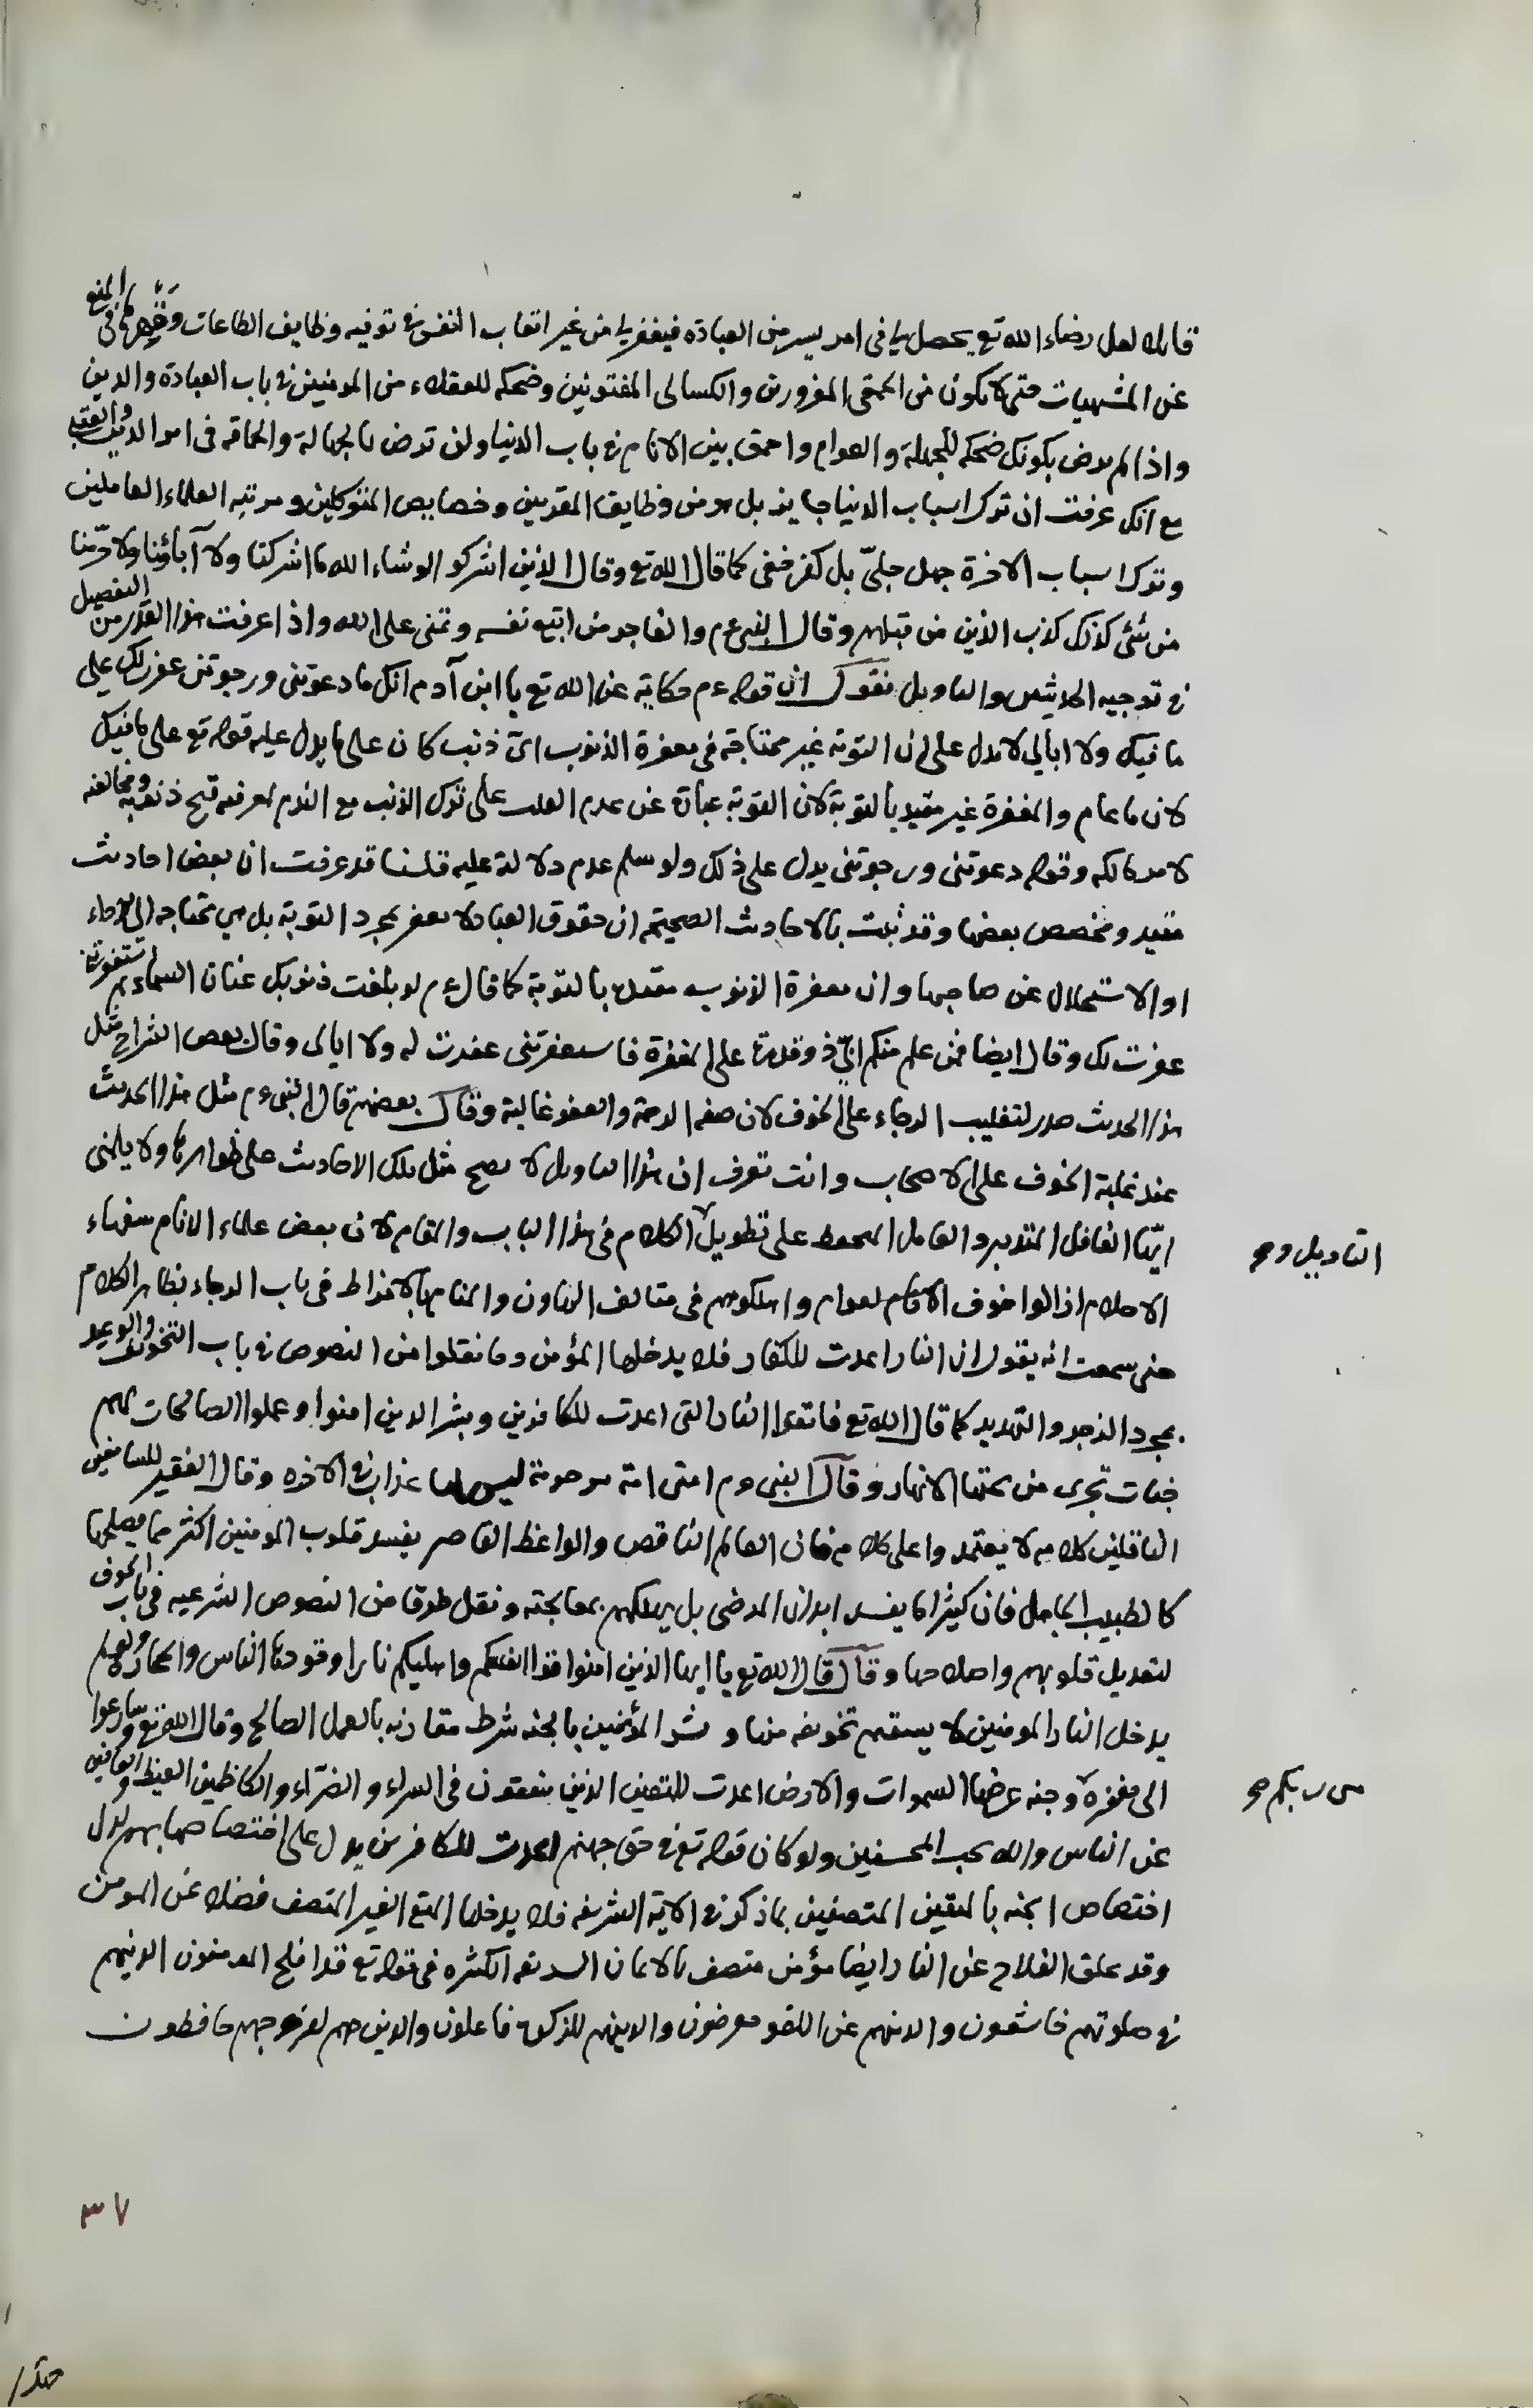 قايلا لعل رضاء الله تع يحصل لي في امر يسير من العبادة فيغفر لي من غير اتعاب النفس في توفيه وظايف الطاعات وقهرها في المنع
عن المشهيات حتى لا تكون من الحمقى المغرورين والكسالى المفتونين وضحكه للعقلاء من المومنين في باب العبادة والدين
واذا لم ترض بكونك ضحكه للجهلة والعوام واحمق بين الانام في باب الدنيا ولن ترض بالجهالة والحماقه في امر الدين والعقبى
مع انك عرفت ان ترك اسباب الدنيا جايز بل هو من وظايف المقربين وخصايص المتوكلين ومرتبه العلماء العاملين
وترك اسباب الاخرة جهل جليّ بل كفر خفي كما قال الله تع وقال الذين اشركوا لو شاء الله ما اشركنا ولا آباؤنا ولا حرّمنا
من شئ كذلك كذب الذين من قبلهم وقال النبي عم والفاجر من اتبع نفسه وتمنى على الله واذا عرفت هذا القدر من التفصيل
في توجيه الحديثين والتاويل نقول ان قوله عم حكاية عن الله تع يا ابن آدم انك ما دعوتني ورجوتني غفرت لك على
ما فيك ولا ابالي لا يدل على ان التوبة غير محتاجة في مغفرة الذنوب اىّ ذنب كان على ما يدل عليه قوله تع على ما فيك
لان ما عام والمغفرة غير مقيد بالتوبة لان التوبة عبارة عن عدم على ترك الذنب مع الندم لمعرفه قبح ذنوبه ومخالفته
لامر مالكه وقوله دعوتني ورجوتني يدل على ذلك ولو سلم عدم دلالة عليه قلنا قد عرفت ان بعض احاديث
مقيد ومخصص بعضها وقد ثبت بالاحاديث الصحيحه ان حقوق العباد لا يغفر بمجرد التوبة بل هي تحتاجه الى
او الاستحلال عن صاحبها وان مغفرة الذنوب مقيد بالتوبة كما قال عم لو بلغت ذنوبك عنان السماء ثم استغفرتني
غفرت لك وقال ايضا فمن علم منكم انّي ذو قدرة على المغفرة فاستغفرتني غفرت له ولا ابالي وقال بعض الشراح مثل
هذا الحديث صدر لتغليب الرجاء على الخوف لان صفه الرحمة والعفو غالبة وقال بعضهم قال النبي عم مثل هذا الحديث
عند غلبة الخوف على الاصحاب وانت تعرف ان هذا التاويل لا يصح مثل تلك الاحاديث على ظواهرها ولا يلمني
ايّها الغافل المتدبر والعامل على تطويل الكلام في هذا الباب والمقام لان بعض علماء الانام سفهاء
التاويل وصح
الاحلام ازالوا خوف الانام لعوام واهلكوهم في متالف التهاون والمناهي بالافراط في باب الرجاء بظاهر الكلام
حتى سمعت انه يقول ان النار اعدت للكفار فلا يدخلها المؤمن وما نقلوا من النصوص في باب التخويف والوعيد
بمجرد الزجر والتهديد كما قال الله تع فاتقوا النار التي اعدت للكافرين وبشر الذين امنوا وعملوا الصالحات لهم
جنات تجري من تحتها الانهار وقال النبي عم امتي امة مرحومة ليس لها عذاب في الاخره وقال الفقير للسامعين
الناقلين كلامه لا يعتمدوا على كلامه فان العالم الناقص والواعظ القاصر يفسد قلوب المومنين اكثر مما يصلحها
كالطبيب الجاهل فان كثيرا ما يفسد ابدان المرضى بل يهلكهم بمعالجته ونقل طرقا من النصوص الشرعيه في باب الخوف
لتعديل قلوبهم واصلاحها وقال قال الله تع يا ايها الذين امنوا قوا انفسكم واهليكم نارا وقودها الناس والحجارة ولو لم
يدخل النار المومنين لا يستقيم تخويفه منها وبشر المؤمنين بالجنه شرط مقارنه بالعمل الصالح وقال الله تع وسارعوا
الى مغفرة وجنه عرضها السموات والارض اعدت للمتقين الذين ينفقون في السراء والضراء والكاظمين الغيظ والعافين
من ربكم صح
عن الناس والله يحب المحسنين ولو كان قوله تع في حق جهنم اعدت للكافرين يدل على اختصاصها بهم لدل
اختصاص الجنه بالمتقين المتصفين بما ذكر في الاية الشريفه فلا يدخلها المتقي الغير المتصف فضلا عن المومن
وقد علق الفلاح عن النار ايضا مؤمن متصف بالايمان الكثره في قوله تع قد افلح المومنون الذينهم
في صلوتهم خاشعون والذينهم عن اللغو معرضون والذينهم للزكوة فاعلون والذين هم لفروجهم حافظون
٣٧